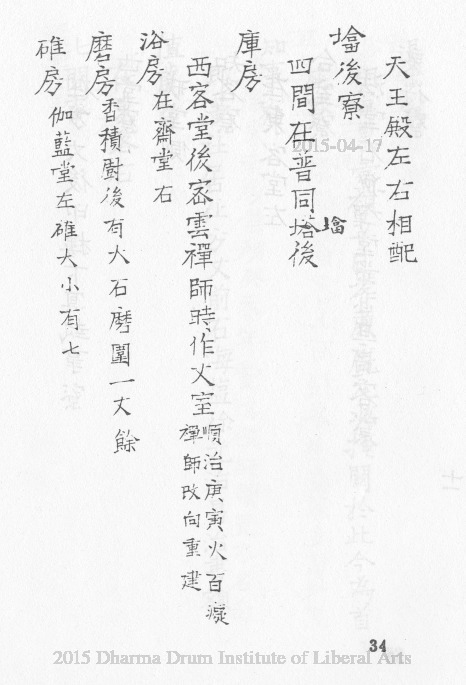 天王殿左右相配
墖後寮
四間在普同塔後
墖
庫房
西客堂後密雲禪師時作火室順治庚寅火百癡
禪師改向重建
浴房在齋堂右
磨房香積廚後有大石磨圍一丈餘
碓房伽藍堂左碓大小有七
34
2015-04-17
2015 Dharma Drum Institute of Liberal Arts